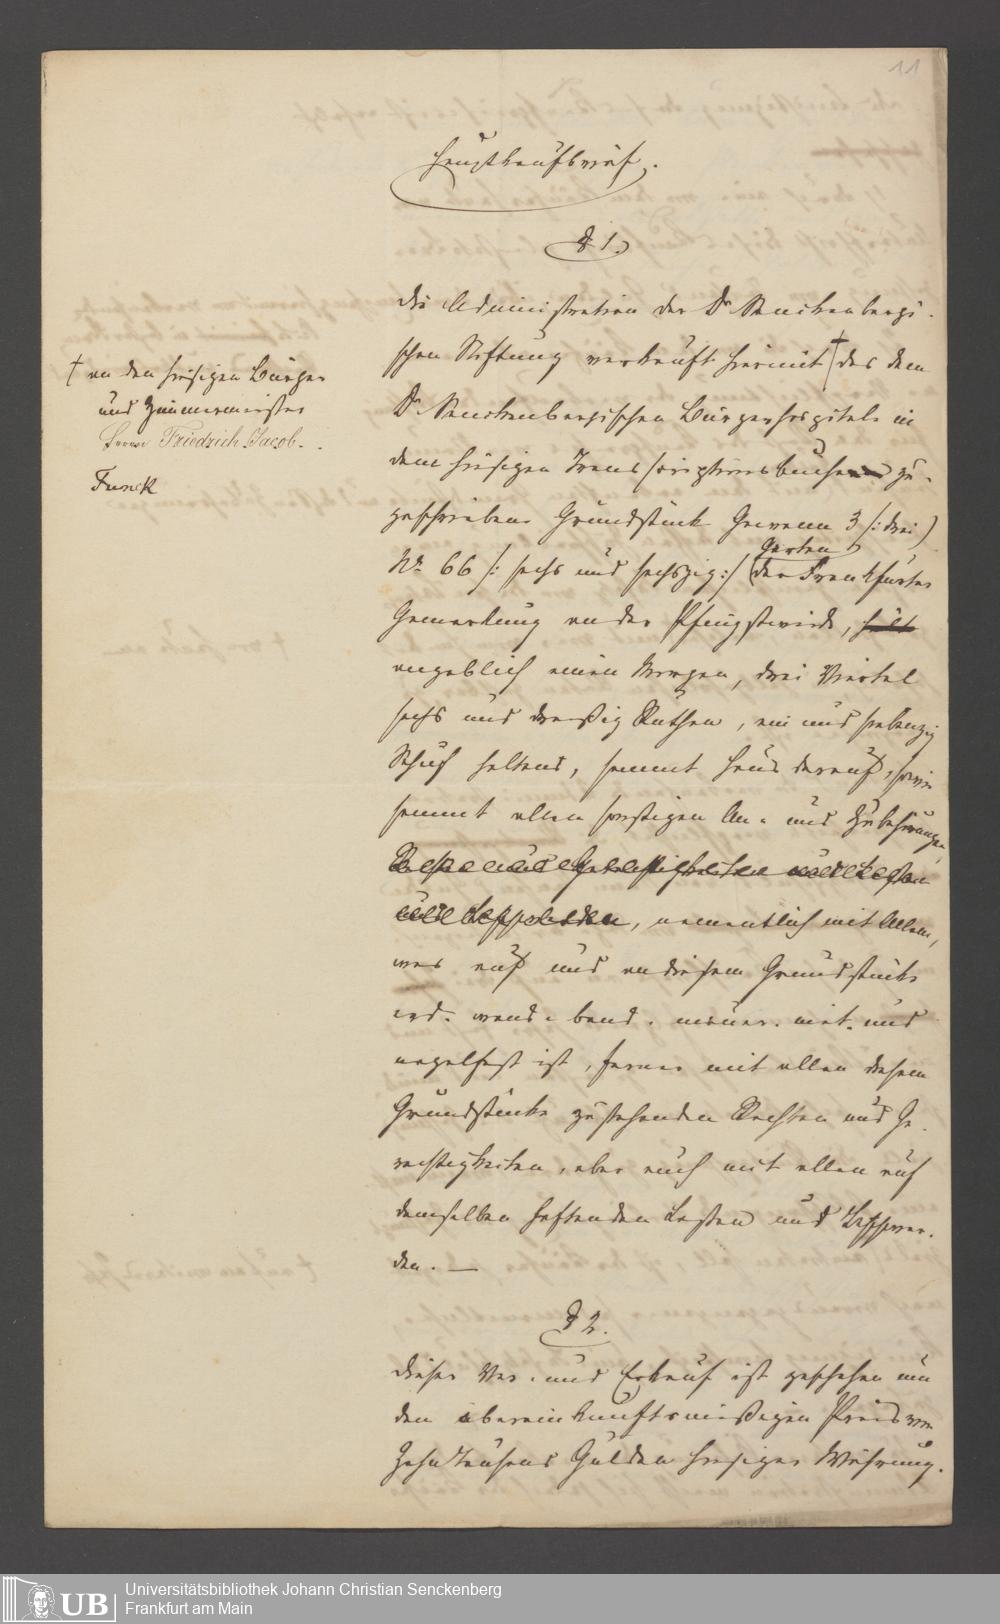 11
Hauptkaufbrief.
§ 1.
Die Administration der Dr Senckenbergi-
schen Stiftung verkauft hiermit † das dem
† an den hiesigen Bürger
und Zimmermeister
Herrn Friedrich Jacob
Funck
Dr Senckenbergischen Bürgerhospitale in
dem hiesigen Transscriptionsbuche zu-
geschriebene Grundstück Gewann 3 /: drei /
Garten
No 66 /: sechs und sechszig :/ der Frankfurter
Gemarkung an der Pfingstweide, hält
angeblich einen Morgen, drei Viertel
sechs und dreißig Ruthen, ein und siebenzig
Schuh haltend, sammt Haus darauf, sowie
sammt allen sonstigen An- und Zubehörungen,
Rechte und Gerechtigkeiten und Lasten
und Beschwerden, namentlich mit Allem,
was auf und an diesem Grundstücke
erd- wand- band- mauer- niet- und
nagelfest ist, ferner mit allen diesem
Grundstücke zustehenden Rechten und Ge-
rechtigkeiten, aber auch mit allen auf
demselben haftenden Lasten und Beschwer-
den. —
§ 2.
Dieser Ver- und Erkauf ist geschehen um
den übereinkunftsmäßigen Preis von
Zehn Tausend Gulden hiesiger Währung.
UB
Universitätsbibliothek Johann Christian Senckenberg
Frankfurt am Main